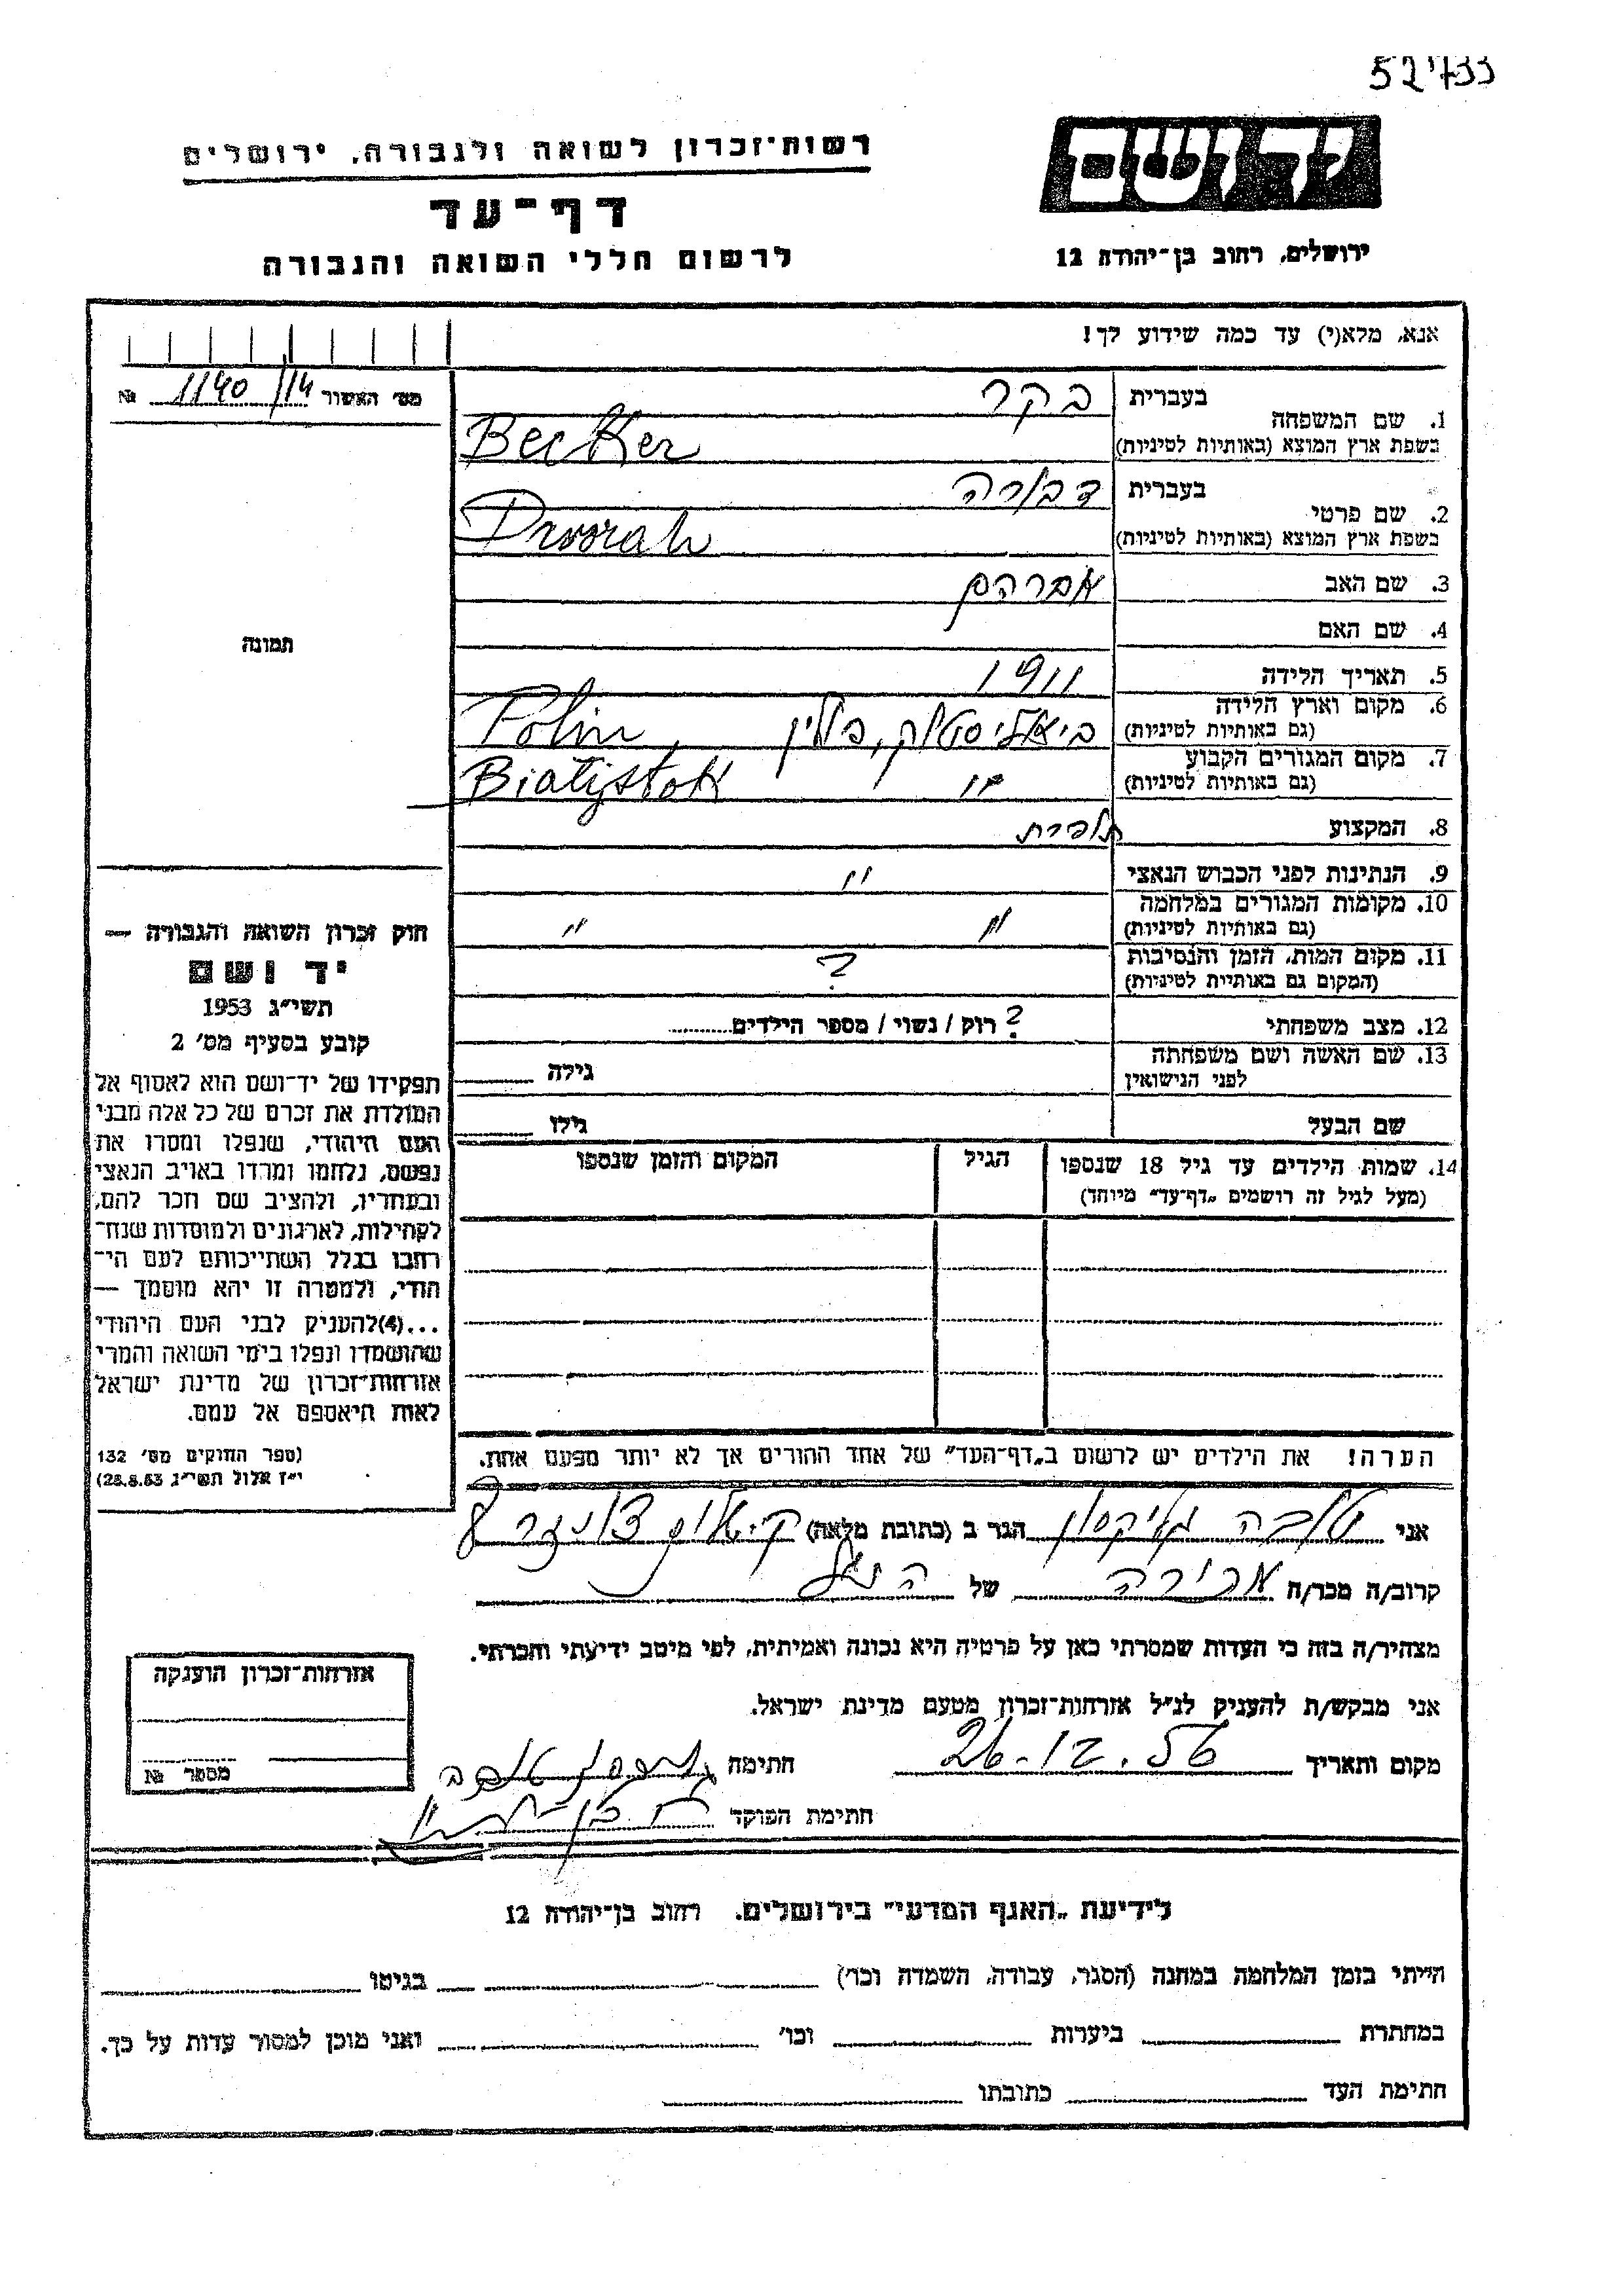 52733
רשות־זכרון לשואה ולגבורה, ירושלים
יד ושם
דף־עד
לרשום חללי השואה והגבורה
ירושלים, רחוב בן־יהודה 12
אנא, מלא(י) עד כמה שידוע לך!
מס׳ האשור 1140/14 №
1. שם המשפחה
בעברית בקר
בשפת ארץ המוצא (באותיות לטיניות) Becker
2. שם פרטי
בעברית דבורה
בשפת ארץ המוצא (באותיות לטיניות) Dworah
3. שם האב אברהם
4. שם האם
תמונה
5. תאריך הלידה 1911
6. מקום וארץ הלידה
(גם באותיות לטיניות) ביאליסטוק, פולין, Polin
7. מקום המגורים הקבוע
(גם באותיות לטיניות) " Bialystok
8. המקצוע תופרת
9. הנתינות לפני הכבוש הנאצי "
10. מקומות המגורים במלחמה
(גם באותיות לטיניות) " "
11. מקום המות, הזמן והנסיבות
(המקום גם באותיות לטיניות) ?
12. מצב משפחתי ? רוק / נשוי / מספר הילדים
13. שם האשה ושם משפחתה
לפני הנישואין
גילה
שם הבעל
גילו
14. שמות הילדים עד גיל 18 שנספו
(מעל לגיל זה רושמים „דף־עד״ מיוחד)
הגיל
המקום והזמן שנספו
חוק זכרון השואה והגבורה —
יד ושם
תשי״ג 1953
קובע בסעיף מס׳ 2
תפקידו של יד־ושם הוא לאסוף אל
המולדת את זכרם של כל אלה מבני
העם היהודי, שנפלו ומסרו את
נפשם, נלחמו ומרדו באויב הנאצי
ובעוזריו, ולהציב שם וזכר להם,
לקהילות, לארגונים ולמוסדות שנח־
רבו בגלל השתייכותם לעם הי־
הודי, ולמטרה זו יהא מוסמך —
...(4) להעניק לבני העם היהודי
שהושמדו ונפלו בימי השואה והמרי
אזרחות־זכרון של מדינת ישראל
לאות היאספם אל עמם.
(ספר החוקים מס׳ 132
י״ז אלול תשי״ג 28.8.53)
הערה! את הילדים יש לרשום ב„דף־העד״ של אחד ההורים אך לא יותר מפעם אחת.
אני טובה גליקסון הגר ב (כתובת מלאה)
קרוב/ה מכר/ה מכירה של הנ״ל
מצהיר/ה בזה כי העדות שמסרתי כאן על פרטיה היא נכונה ואמיתית, לפי מיטב ידיעתי והכרתי.
אני מבקש/ת להעניק לנ״ל אזרחות־זכרון מטעם מדינת ישראל.
מקום ותאריך 26-12.56 חתימה
חתימת הפוקד
אזרחות־זכרון הוענקה
מספר №
לידיעת „האגף המדעי״ בירושלים. רחוב בן־יהודה 12
הייתי בזמן המלחמה במחנה (הסגר, עבודה, השמדה וכו׳) בגיטו
במחתרת ביערות וכו׳ ואני מוכן למסור עדות על כך.
חתימת העד כתובתו